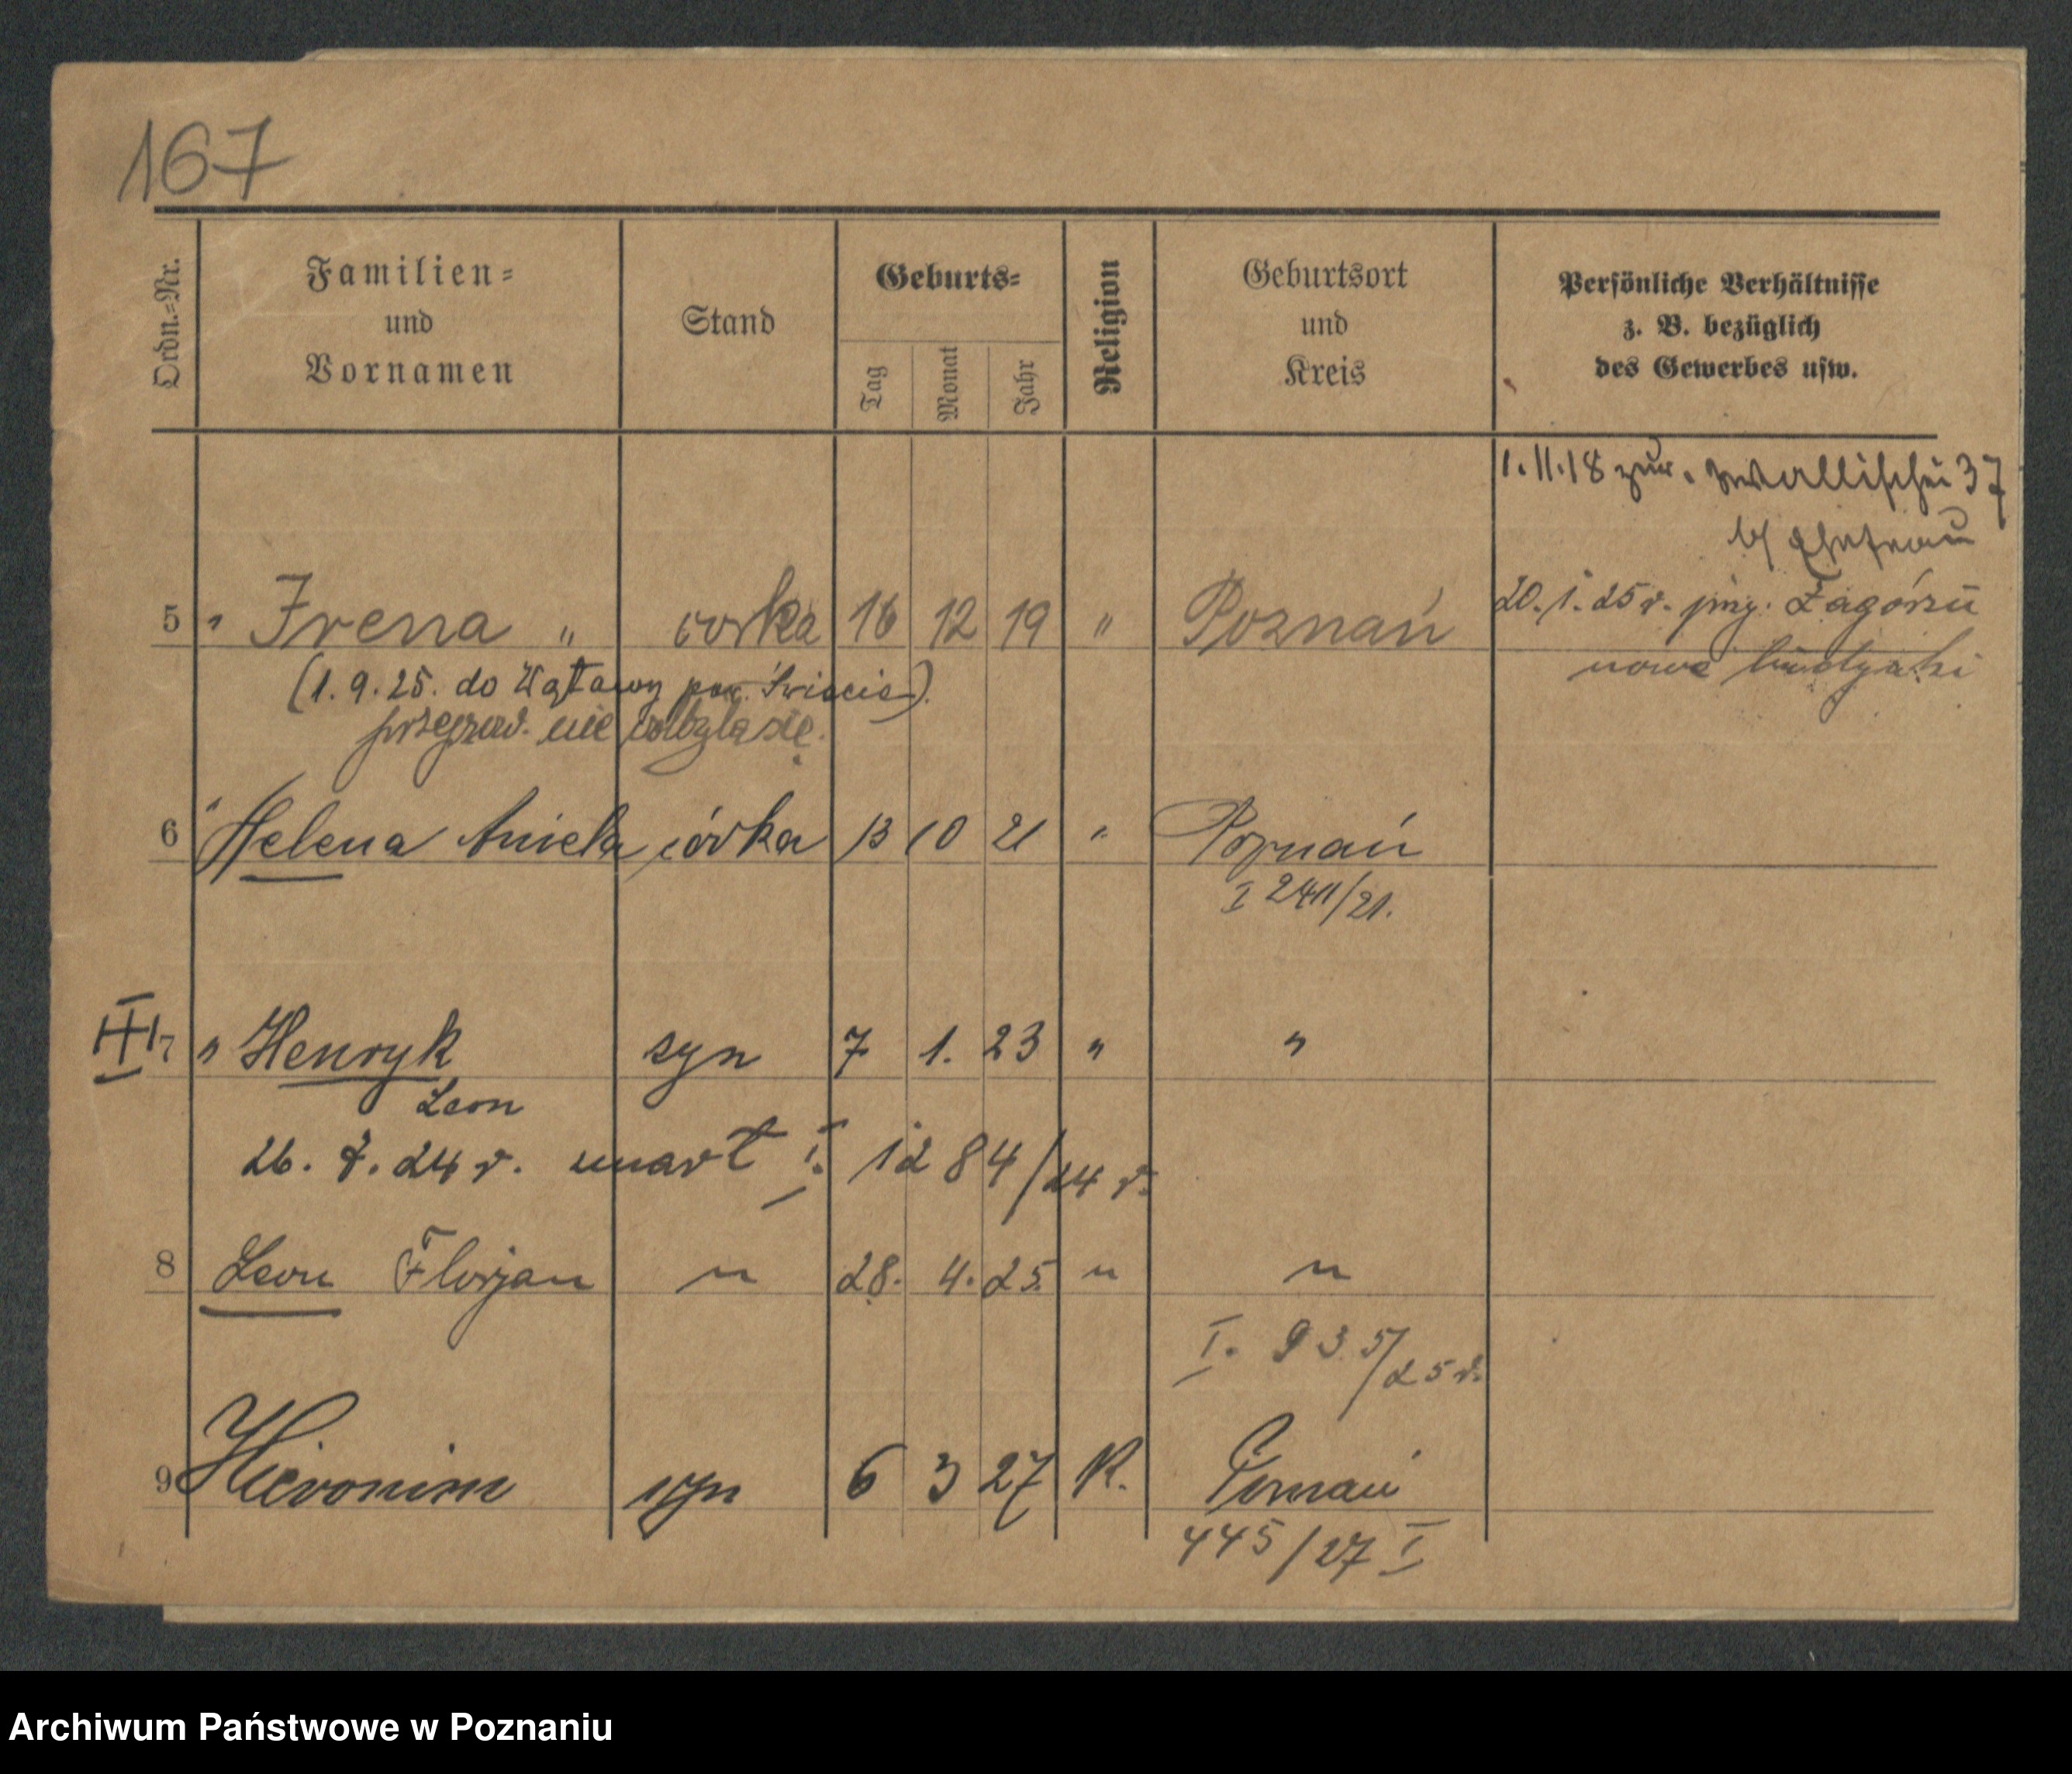 167
Ordn.=Nr.
Familien=
und
Vornamen
Stand
Geburts=
Tag
Monat
Jahr
Religion
Geburtsort
und
Kreis
Persönliche Verhältnisse
z. B. bezüglich
des Gewerbes usw.
1.11.18 zur. Wallischei 37
b/ Ehefrau
5 " Irena " corka 16 12 19 " Poznań
20.1.25 r. Zagórzu
nowe
(1.9.25. do pow. Świecie).
nie odbyła się.
6 " Helena Aniela córka 13 10 21 " Poznań
I 2411/21.
7 " Henryk syn 7 1. 23 " "
Leon
26. 7. 24 r. umarł I. 1284/24 r.
8 Leon Florjan " 28. 4. 25. " "
I. 935/25 r.
9 Hieronim syn 6 3 27 R. Poznań
445/27 I
Archiwum Państwowe w Poznaniu